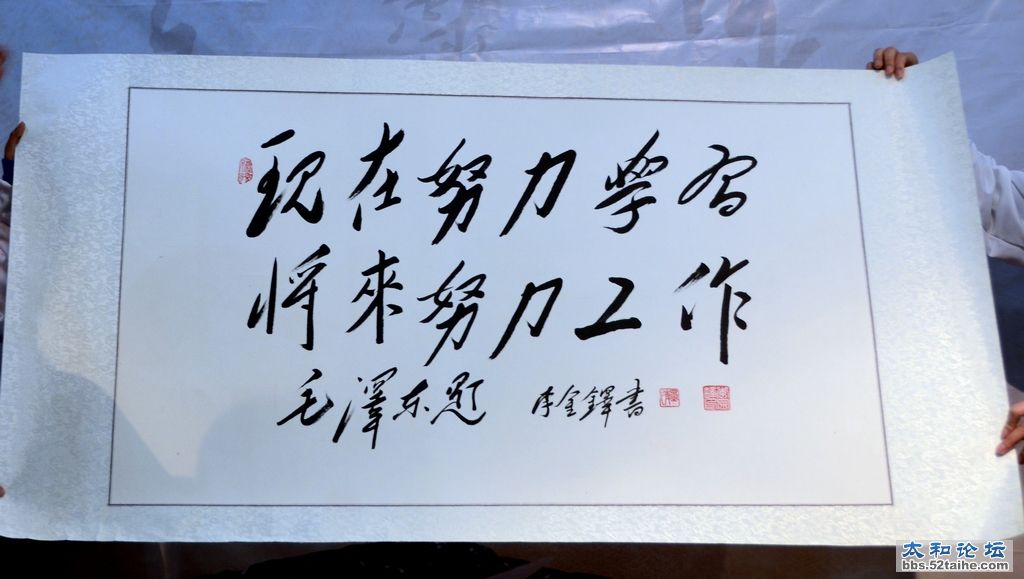 现在努力学习
将來努力工作
毛澤东题 李金鐸書
太和论坛
bbs.52taihe.com